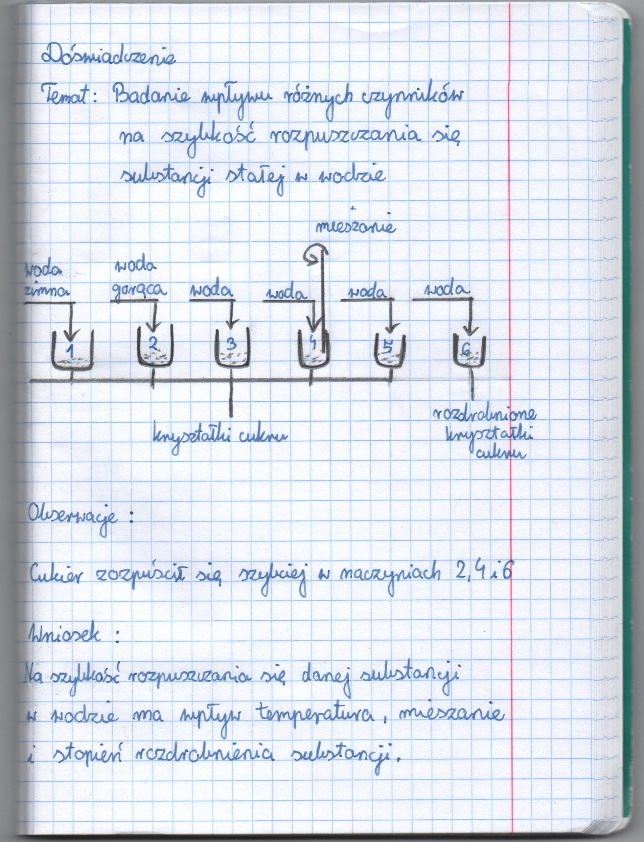 Doświadczenie
Temat: Badanie wpływu różnych czynników
na szybkość rozpuszczania się
substancji stałej w wodzie
mieszanie
woda zimna
woda gorąca
woda
woda
woda
woda
1 2 3 4 5 6
kryształki cukru
rozdrobnione
kryształki
cukru
Obserwacje:
Cukier rozpuścił się szybciej w naczyniach 2, 4 i 6
Wniosek:
Na szybkość rozpuszczania się danej substancji
w wodzie ma wpływ temperatura, mieszanie
i stopień rozdrobnienia substancji.